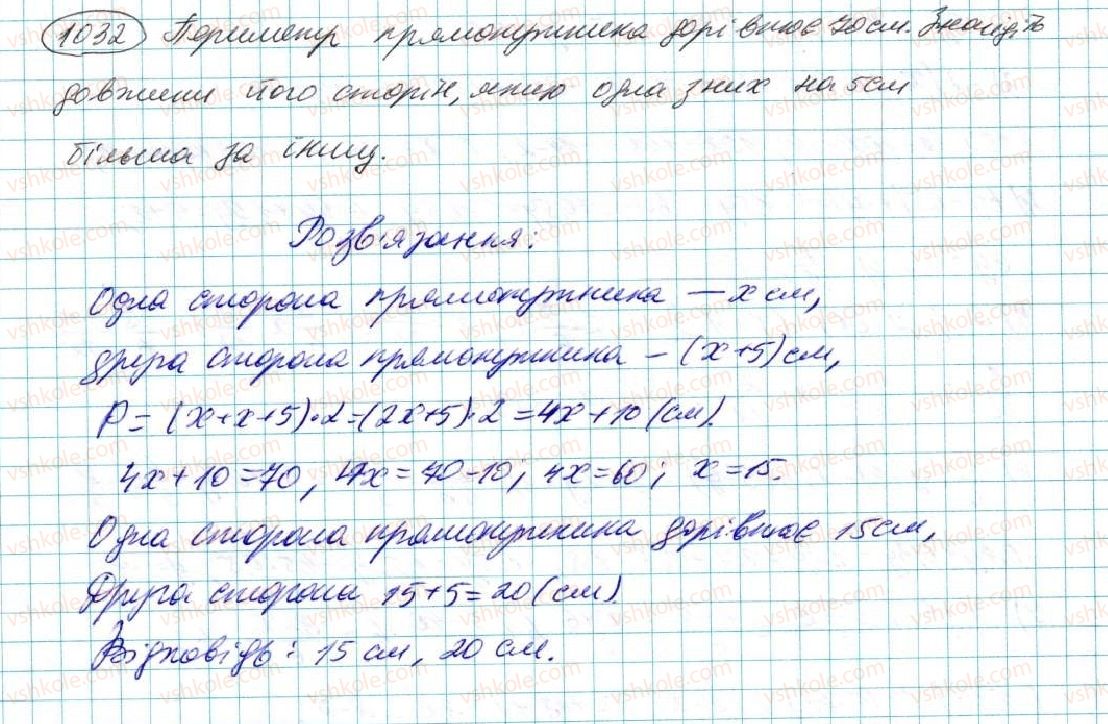 1032 Периметр прямокутника дорівнює 70 см. Знайдіть
довжини його сторін, якщо одна з них на 5 см
більша за іншу.
Розв'язання:
Одна сторона прямокутника — x см,
друга сторона прямокутника – (x+5) см,
P = (x+x+5)·2=(2x+5)·2=4x+10 (см).
4x+10=70, 4x=70-10; 4x=60; x=15.
Одна сторона прямокутника дорівнює 15 см,
Друга сторона 15+5=20 (см).
Відповідь: 15 см, 20 см.